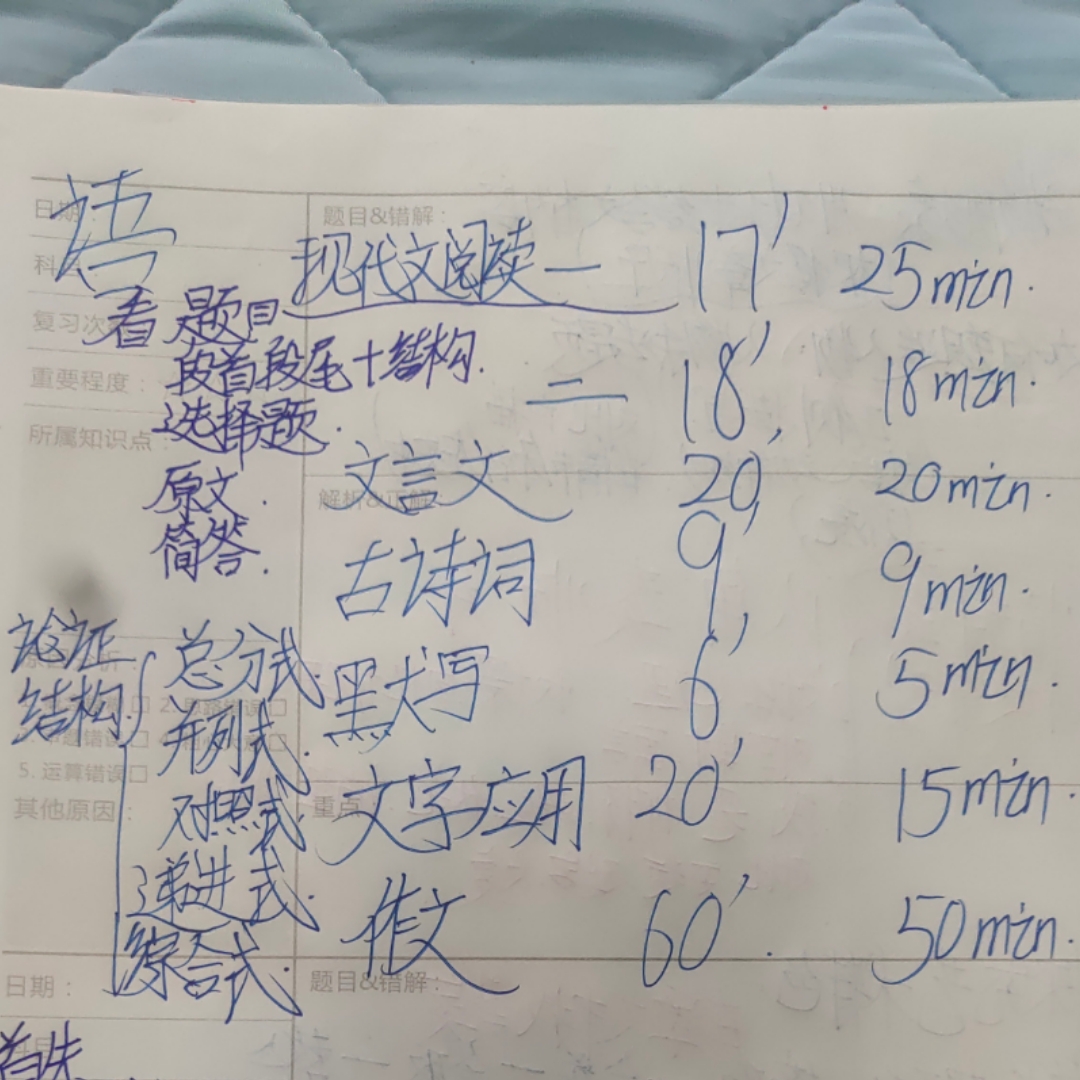 语
日期：
题目&错解：
科
现代文阅读一 17′ 25min.
复习次
看题目
段首段尾十结构.
二 18′ 18min.
重要程度：
选择题.
所属知识点：
文言文 20′ 20min.
原文.
解析&正解：
简答.
古诗词 9′ 9min.
论证
结构
总分式.
默写 6′ 5min.
2. 思路错误□
并列式.
错误□
5. 运算错误□
其他原因：
对照式.
重点：
文字应用 20′ 15min.
递进式.
作文 60′. 50min.
综合式.
日期：
题目&错解：